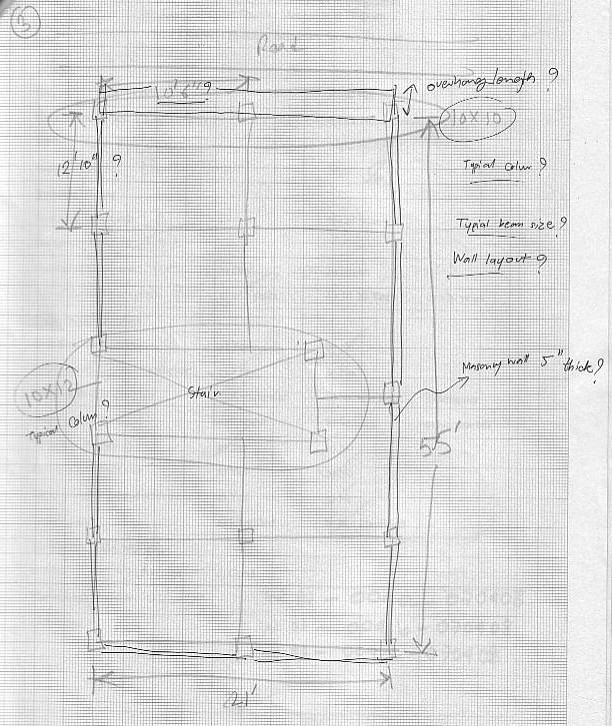 3
Road
10'6"?
overhang length ?
10X10
12'10" ?
Typical colum ?
Typial beam size ?
Wall layout ?
Masonry wall 5" thick ?
10X12
Stair
Typical Colum ?
55'
21'